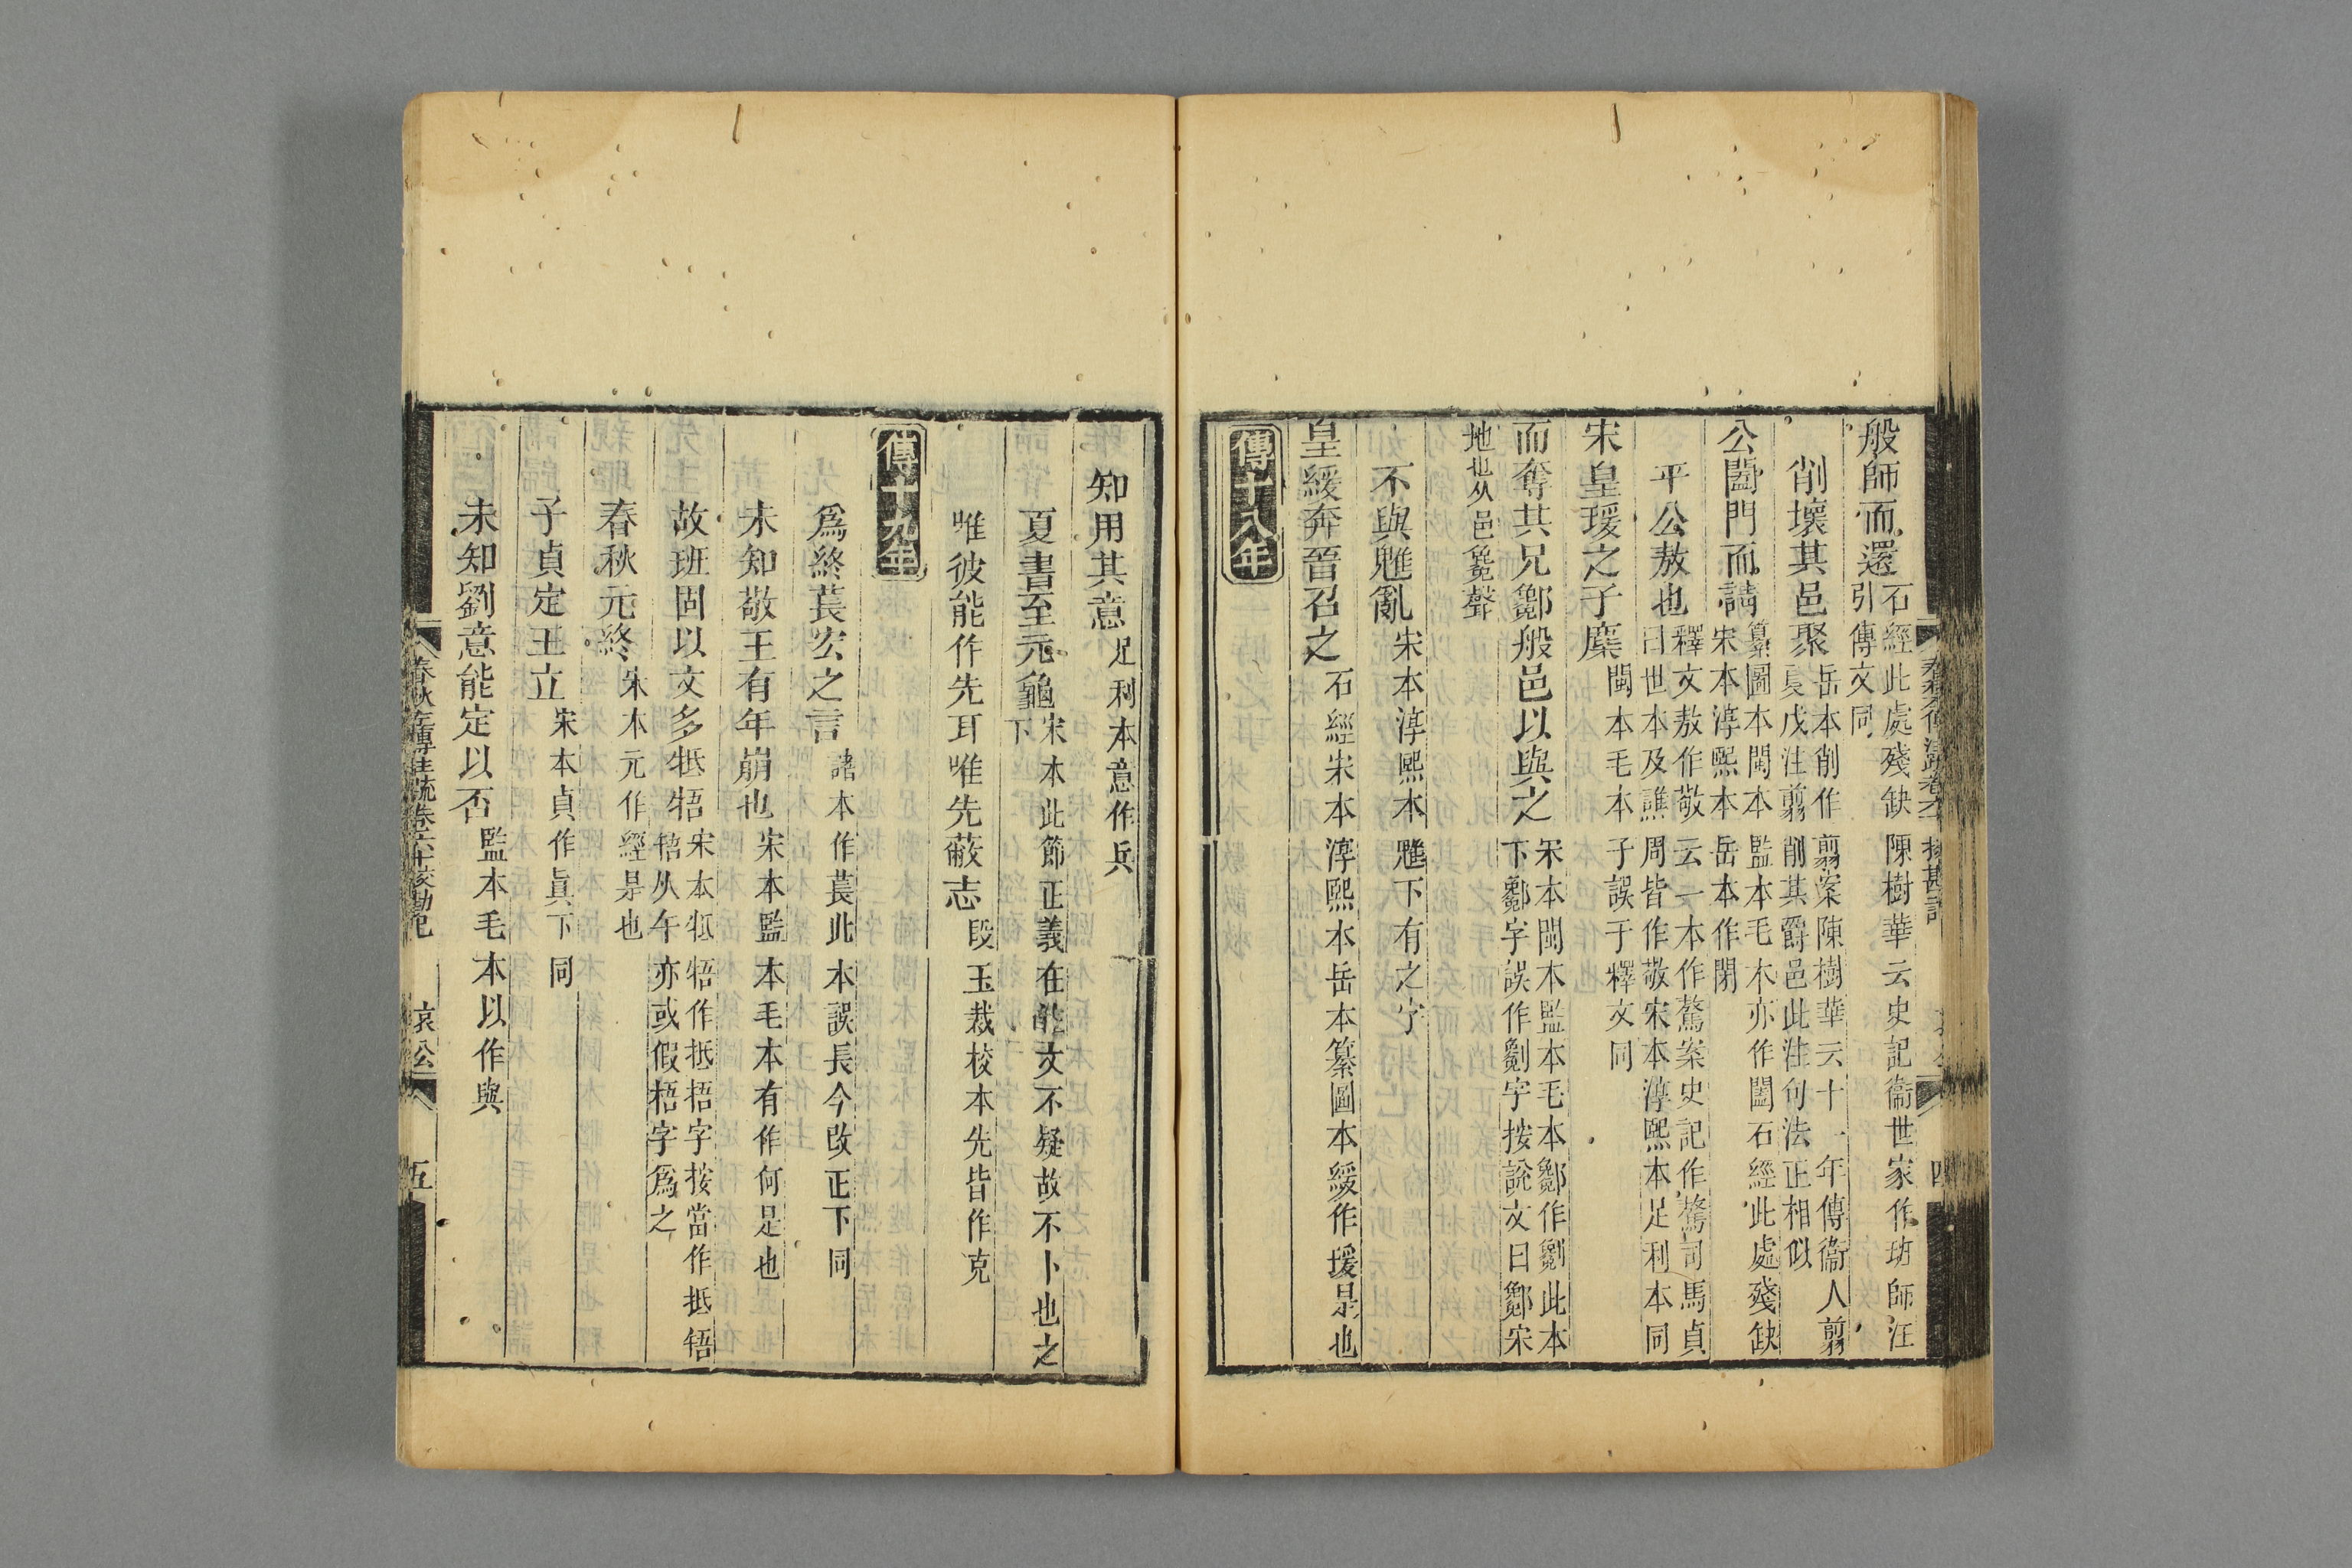 般師而還石經此處殘缺陳樹華云史記衞世家作班師汪
引傳文同
削壞其邑聚岳本削作翦案陳樹華云十一年傳衞人翦
夏戊注翦削其爵邑此注句法正相似
公闔門而請纂圖本閩本監本毛本亦作闔石經此處殘缺
宋本淳熙本岳本作閉
平公敖也釋文敖作敬云一本作驁案史記作驁司馬貞
曰世本及譙周皆作敬宋本淳熙本足利本同
宋皇瑗之子麇閩本毛本子誤于釋文同
而奪其兄鄒般邑以與之宋本閩本監本毛本鄒作劖此本
下鄒字誤作劖字按說文曰鄒宋
地也从邑毚聲
不與魋亂宋本淳熙本魋下有之字
皇緩奔晉召之石經宋本淳熙本岳本纂圖本緩作瑗是也
傳十八年
春秋左傳注疏卷六十校勘記
四
知用其意足利本意作兵
夏書至元龜宋本此節正義在能文不疑故不卜也之
下
唯彼能作先耳唯先蔽志段玉裁校本先皆作克
傳十九年
爲終萇宏之言諸本作萇此本誤長今改正下同
未知敬王有年崩也宋本監本毛本有作何是也
故班固以文多牴牾宋本牴牾作抵捂字按當作抵牾
牾从午亦或假梧字爲之
春秋元終宋本元作經是也
子貞定王立宋本貞作眞下同
未知劉意能定以否監本毛本以作與
春秋左傳注疏卷六十校勘記
哀公
五